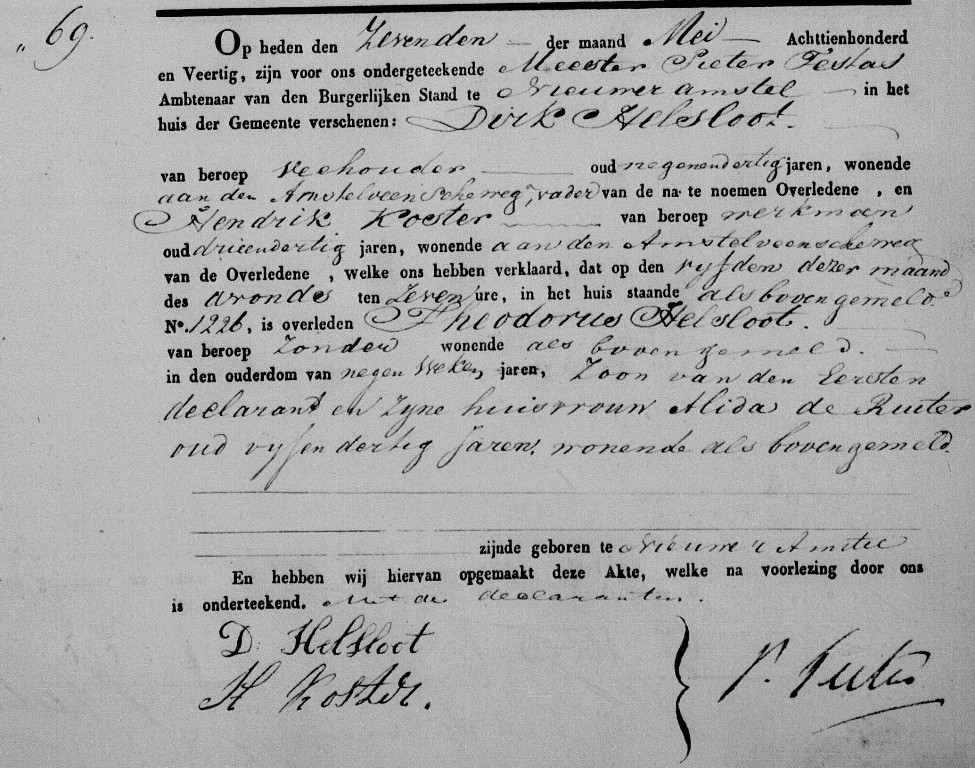 " 69.
Op heden den Zevenden der maand Mei Achttienhonderd
en Veertig, zijn voor ons ondergeteekende Meester Pieter Testas
Ambtenaar van den Burgerlijken Stand te Nieuwer amstel in het
huis der Gemeente verschenen: Dirk Helsloot.
van beroep Veehouder oud negenendertig jaren, wonende
aan den Amstelveenscheweg, vader van de na te noemen Overledene , en
Hendrik Koster van beroep werkman
oud drieendertig jaren, wonende aan den Amstelveenscheweg
van de Overledene , welke ons hebben verklaard, dat op den vyfden dezer maand
des avonds ten Zeven ure, in het huis staande als bovengemeld
No. 1226, is overleden Theodorus Helsloot.
van beroep Zonder wonende als bovengemeld.
in den ouderdom van negen Weken jaren, Zoon van den Eersten
declarant en Zyne huisvrouw Alida de Ruiter
oud vyfendertig Jaren, wonende als bovengemeld.
zijnde geboren te Nieuwer Amstel
En hebben wij hiervan opgemaakt deze Akte, welke na voorlezing door ons
is onderteekend. Met de declaranten.
D. Helsloot
H Koster.
P. Testas